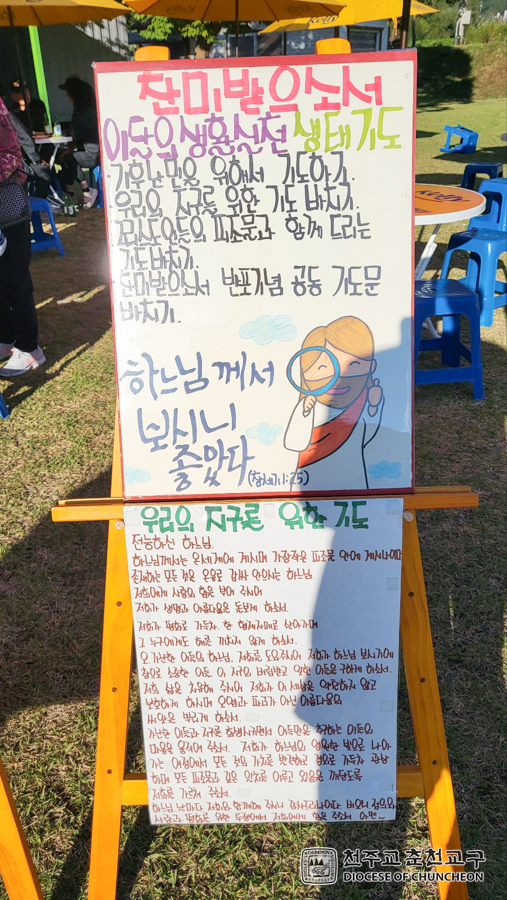 찬미받으소서
이달의 생활실천 생태기도
기후난민을 위해서 기도하기.
우리의 지구를 위한 기도 바치기.
그리스도인들의 피조물과 함께 드리는
기도바치기.
찬미받으소서 반포기념 공동 기도문
바치기.
하느님께서
보시니
좋았다
(창세기1:25)
우리의 지구를 위한 기도
전능하신 하느님,
하느님께서는 온세계에 계시며 가장작은 피조물 안에 계시나이다
존재하는 모든 것을 온유로 감싸 안으시는 하느님
저희에게 사랑의 힘을 부어 주시어
저희가 생명과 아름다움을 돌보게 하소서.
저희가 평화로 가득차 한 형제자매로 살아가며
그 누구에게도 해를 끼치지 않게 하소서.
오 가난한 이들의 하느님, 저희를 도와주시어 저희가 하느님 보시기에
참으로 소중한 이들 이 지구의 버림받고 잊힌 이들을 구하게 하소서.
저희 삶을 치유해 주시어 저희가 이 세상을 약탈하지 않고
보호하게 하시며 오염과 파괴가 아닌 아름다움의
씨앗을 뿌리게 하소서.
가난한 이들과 지구를 희생시키면서 이득만을 추구하는 이들의
마음을 움직여 주소서. 저희가 하느님의 영원한 빛으로 나아
가는 여정에서 모든 것의 가치를 발견하고 경외로 가득차 관상
하며 모든 피조물과 깊은 일치를 이루고 있음을 깨닫도록
저희를 가르쳐 주소서.
하느님 날마다 저희와 함께해 주시니 감사드리나이다 비오니 정의와
사랑과 평화를 위한 투쟁에서 저희에게 힘을 주소서 아멘~
천주교춘천교구
DIOCESE OF CHUNCHEON